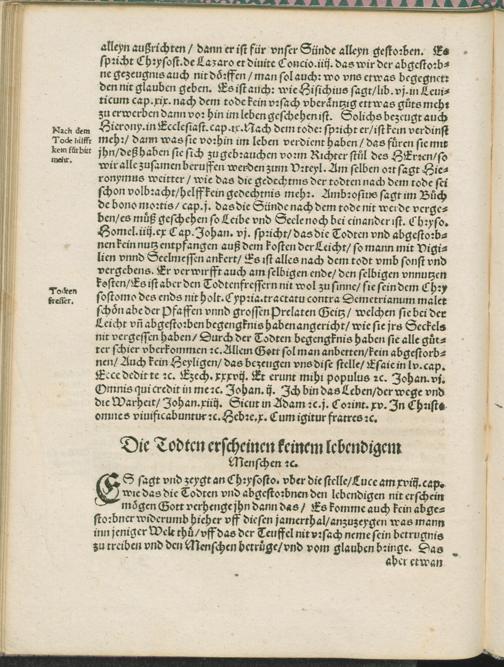 alleyn außrichten / dann er ist für vnser Sünde alleyn gestorben. Es
spricht Chrysost. de Lazaro et diuite Concio. iiij. das wir der abgestorb-
ne gezeugnis auch nit dörffen / man sol auch: wo vns etwas begegnet
den nit glauben geben. Es ist auch: wie Hisichius sagt / lib. vj. in Leui-
ticum cap. xix. nach dem tode kein vrsach vberäntzig etwas güts mehr
zu erwerben dann vor hin im leben geschehen ist. Solichs bezeugt auch
Hierony. in Ecclesiast. cap. ix. Nach dem tode: spricht er / ist kein verdinst
Nach dem
Tode hilfft
kein fürbitt
mehr.
mehr / dann was sie vorhin im leben verdient haben / das füren sie mit
jhn / deß haben sie sich zu gebrauchen vorm Richter stül des HErren / so
wir alle zusamen beruffen werden zum Vrteyl. Am selben ort sagt Hie-
ronymus weitter / wie das die gedechtnis der todten nach dem tode sei
schon volbracht / helff kein gedechtnis mehr. Ambrosius sagt im Büch
de bono mortis / cap. j. das die Sünde nach dem tode nit werde verge-
ben / es müß geschehen so Leibe vnd Seele noch bei einander ist. Chryso.
Homel. iiij. ex Cap. Johan. vj. spricht / das die Todten vnd abgestorb-
nen kein nutz entpfangen auß dem kosten der Leicht / so mann mit Vigi-
lien vnnd Seelmessen ankert / Es ist alles nach dem todt vmb sonst vnd
vergebens. Er verwirfft auch am selbigen ende / den selbigen vnnutzen
Todten
fresser.
kosten / Es ist aber den Todtenfressern nit wol zu sinne / sie sein dem Chry
sostomo des ends nit holt. Cypria. tractatu contra Demetrianum malet
schön abe der Pfaffen vnnd grossen Prelaten Geitz / welchen sie bei der
Leicht vñ abgestorben begengknis haben angericht / wie sie jrs Seckels
nit vergessen haben / Durch der Todten begengknis haben sie alle güt-
ter schier vberkommen ꝛc. Allein Gott sol man anbetten / kein abgestorb-
nen / Auch kein Heyligen / das bezeugen vns dise stelle / Esaie in lv. cap.
Ecce dedit te ꝛc. Ezech. xxxvij. Et erunt mihi populus ꝛc. Johan. vi.
Omnis qui credit in me ꝛc. Johan. ij. Ich bin das Leben / der wege vnd
die Warheit / Johan. xiiij. Sicut in Adam ꝛc. j. Corint. xv. In Christo
omnes viuificabuntur ꝛc. Hebre. x. Cum igitur fratres ꝛc.
Die Todten erscheinen keinem lebendigem
Menschen ꝛc.
ES sagt vnd zeygt an Chrysosto. vber die stelle / Luce am xvij. cap.
wie das die Todten vnd abgestorbnen den lebendigen nit erschein
mögen Gott verhenge jhn dann das / Es komme auch kein abge-
storbner widerumb hieher vff diesen jamerthal / anzuzeygen was mann
inn jeniger Welt thü / vff das der Teuffel nit vrsach neme sein betrugnis
zu treiben vnd den Menschen betrüge / vnd vom glauben bringe. Das
aber etwan